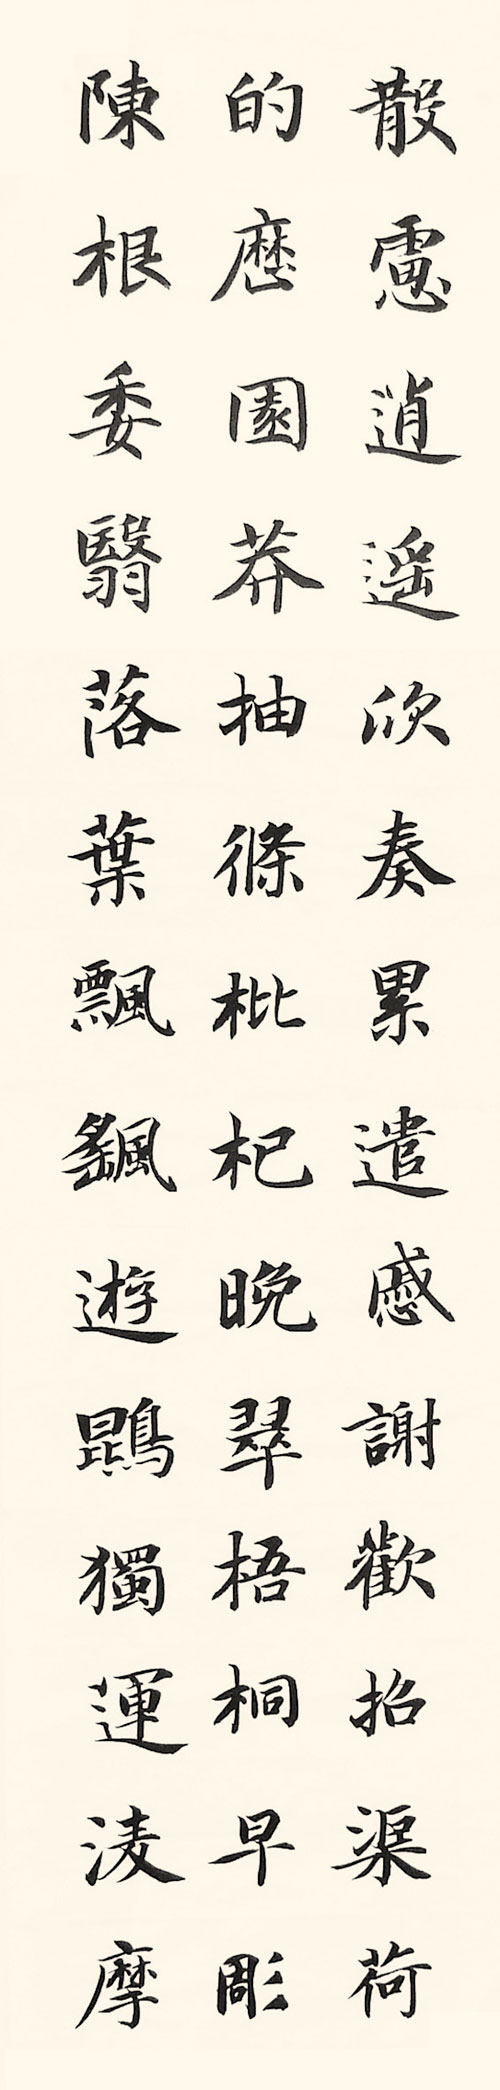 散慮逍遥欣奏累遣慼謝歡招渠荷
的歷園莽抽條枇杷晚翠梧桐早彫
陳根委翳落葉飄颻遊鵾獨運淩摩